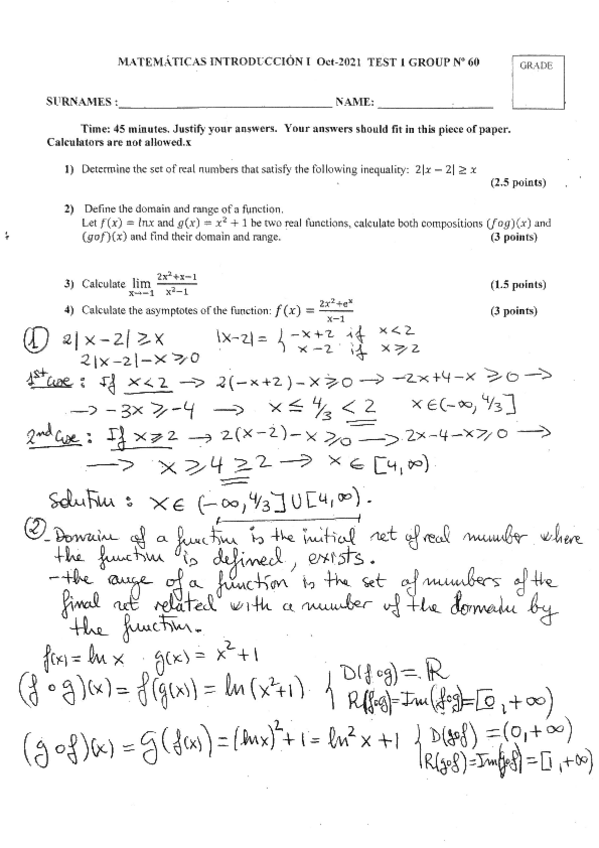 MATEMÁTICAS INTRODUCCIÓN I Oct-2021 TEST 1 GROUP Nº 60
GRADE
SURNAMES :____________________ NAME: ____________________
Time: 45 minutes. Justify your answers. Your answers should fit in this piece of paper.
Calculators are not allowed.x
1) Determine the set of real numbers that satisfy the following inequality: 2|x − 2| ≥ x
(2.5 points)
2) Define the domain and range of a function.
Let f(x) = lnx and g(x) = x² + 1 be two real functions, calculate both compositions (fog)(x) and
(gof)(x) and find their domain and range. (3 points)
3) Calculate lim x→−1 (2x²+x−1)/(x²−1) (1.5 points)
4) Calculate the asymptotes of the function: f(x) = (2x²+eˣ)/(x−1) (3 points)
① 2|x−2| ≥ x |x−2| = { −x+2 if x<2
x−2 if x≥2
2|x−2|−x ≥ 0
1st case : If x<2 → 2(−x+2)−x ≥ 0 → −2x+4−x ≥ 0 →
→ −3x ≥ −4 → x ≤ 4/3 < 2 x∈(−∞, 4/3]
2nd case : If x≥2 → 2(x−2)−x ≥ 0 → 2x−4−x ≥ 0 →
→ x ≥ 4 ≥ 2 → x ∈ [4,∞)
Solution : x ∈ (−∞, 4/3] ∪ [4,∞).
② - Domain of a function is the initial set of real number where
the function is defined, exists.
- the range of a function is the set of numbers of the
final set related with a number of the domain by
the function.
f(x) = ln x g(x) = x²+1
(f∘g)(x) = f(g(x)) = ln(x²+1) { D(f∘g) = ℝ
R(f∘g) = Im(f∘g) = [0,+∞)
(g∘f)(x) = g(f(x)) = (lnx)²+1 = ln²x+1 { D(g∘f) = (0,+∞)
R(g∘f) = Im(g∘f) = [1,+∞)